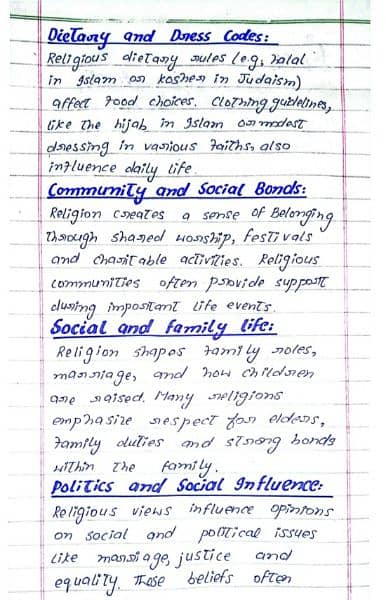 Dietary and Dress Codes:
Religious dietary rules (e.g., halal
in Islam or kosher in Judaism)
affect food choices. Clothing guidelines,
like the hijab in Islam or modest
dressing in various faiths, also
influence daily life.
Community and Social Bonds:
Religion creates a sense of Belonging
through shared worship, festivals
and charitable activities. Religious
communities often provide support
during important life events.
Social and family life:
Religion shapes family roles,
marriage, and how children
are raised. Many religions
emphasize respect for elders,
family duties and strong bonds
within the family.
Politics and Social Influence:
Religious views influence opinions
on social and political issues
like marriage, justice and
equality. These beliefs often